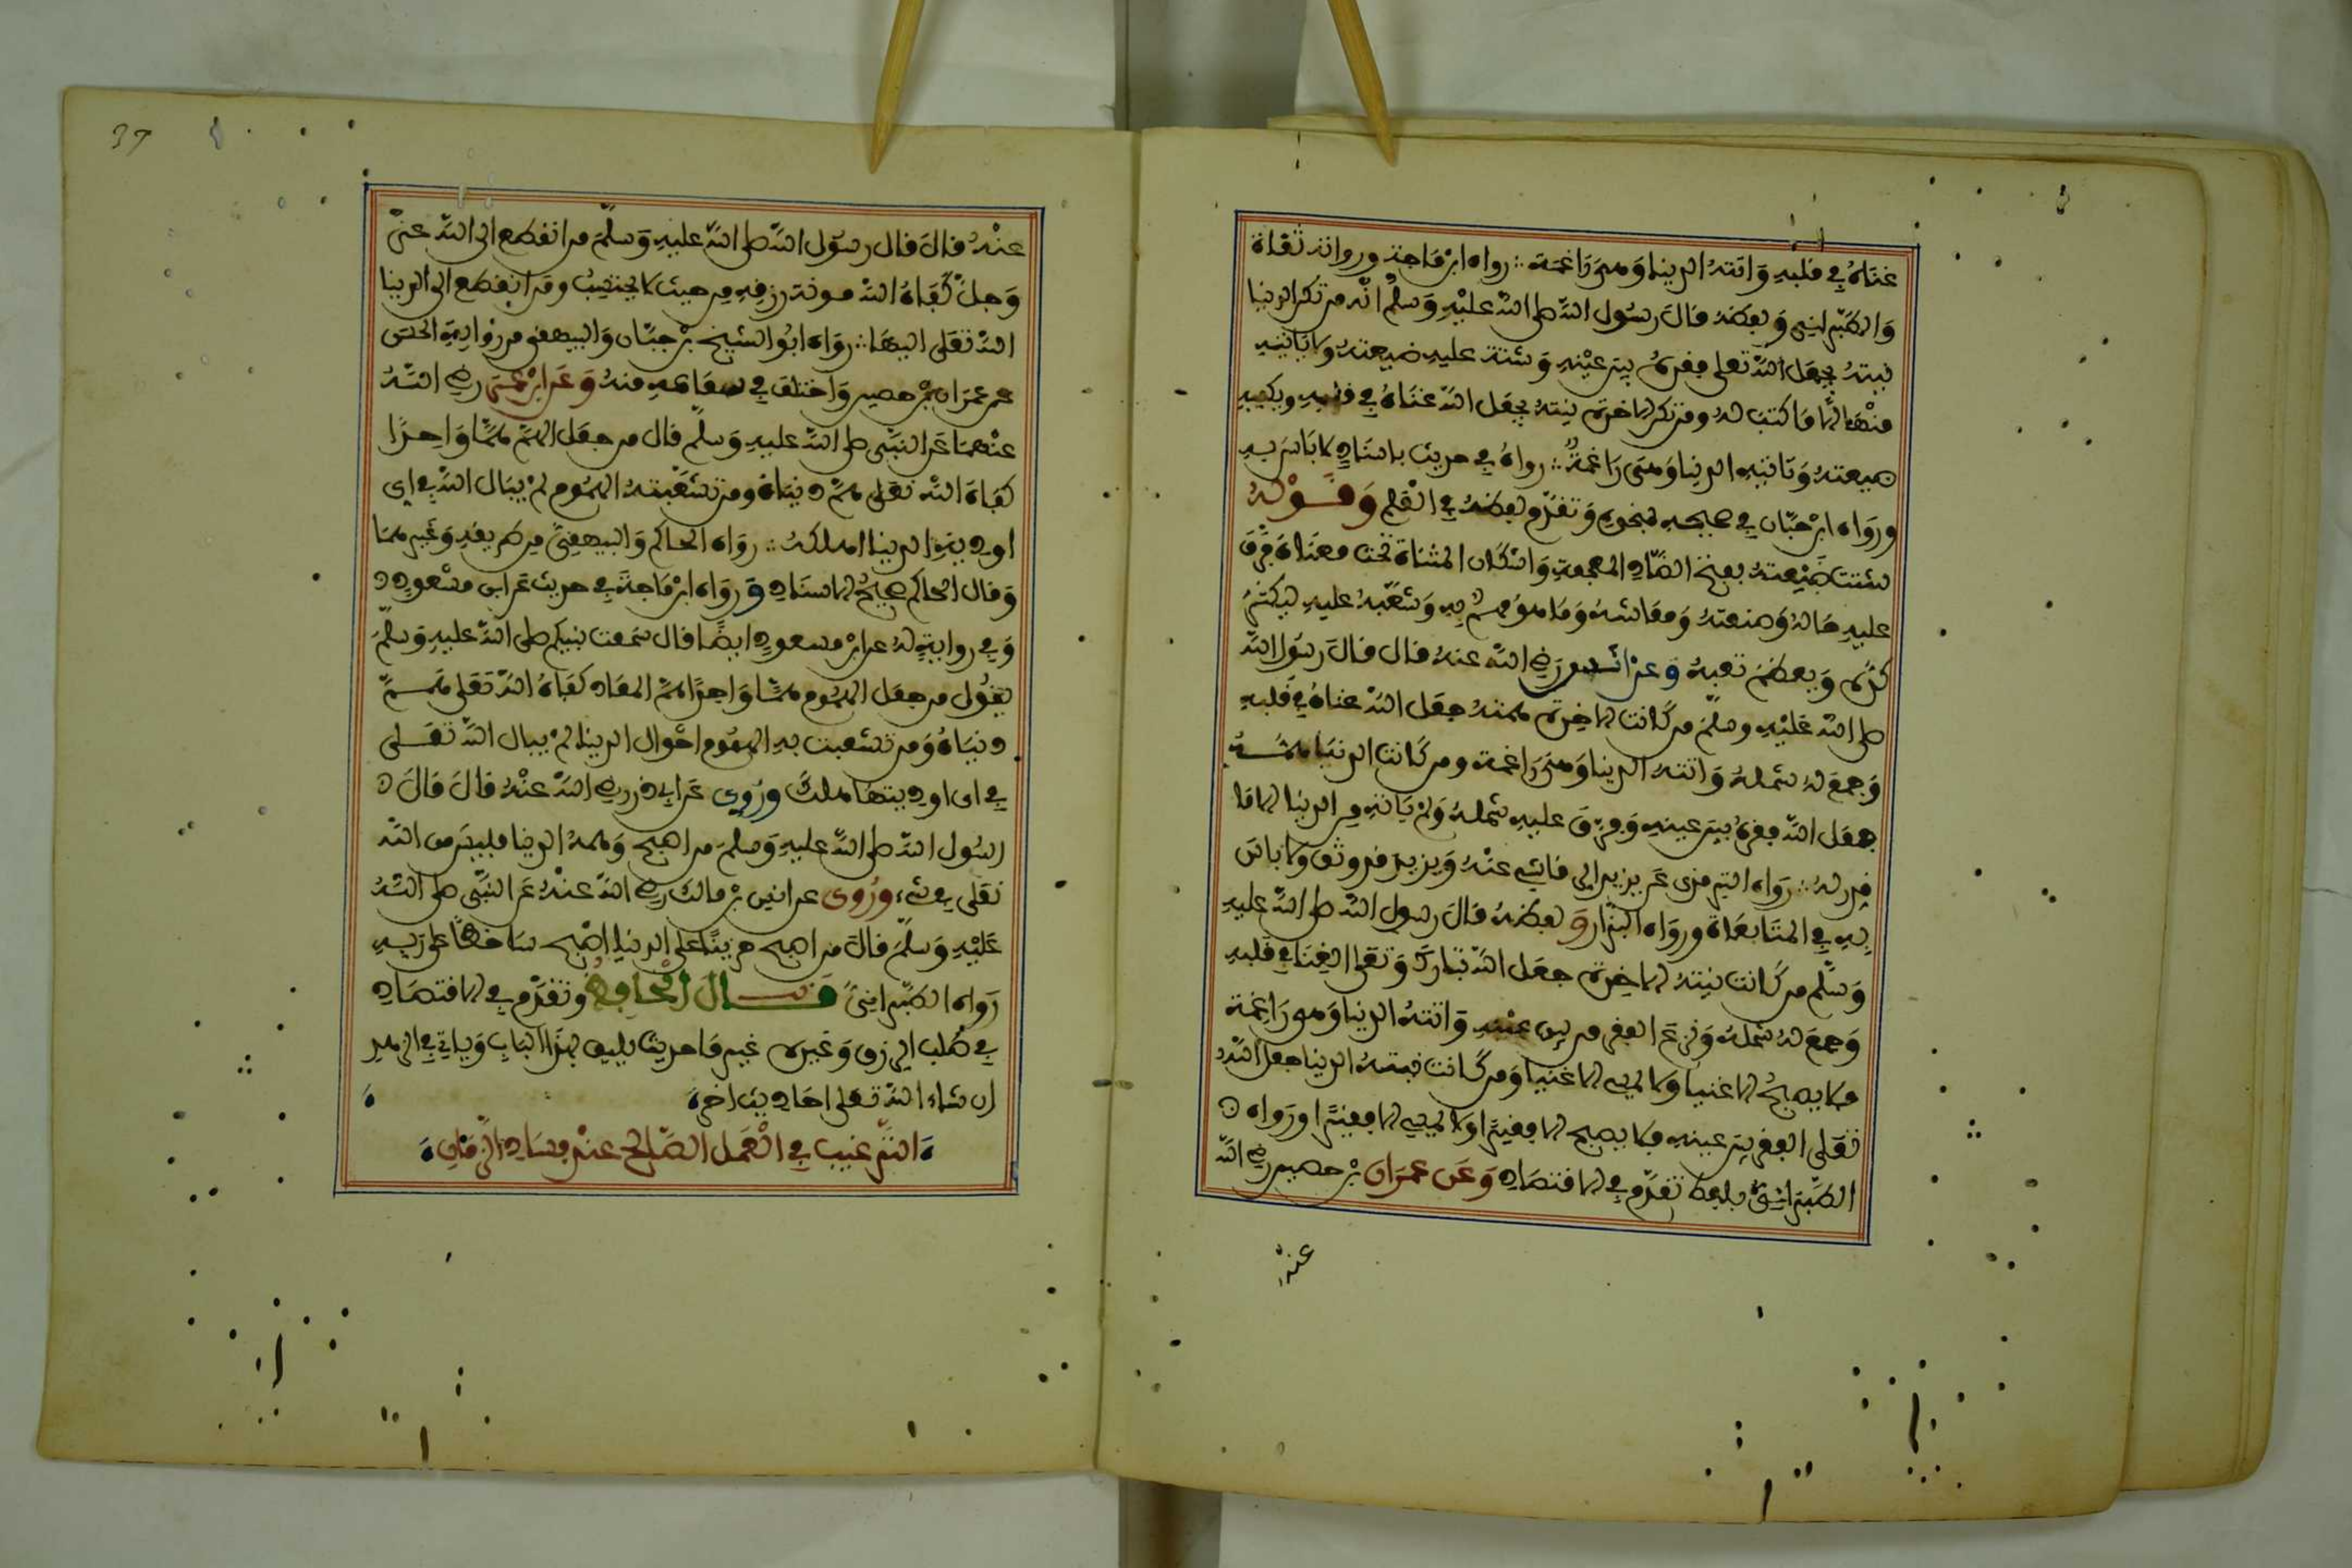 غناه في قلبه واتته الدنيا وهي راغمة ∴ رواه ابن ماجة ورواته ثقاة
والطبراني ولفظه قال رسول الله صلى الله عليه وسلم انه من تكن الدنيا
نيته يجعل الله تعلى فقره بين عينيه وشتت عليه ضيعته ولا ياتيه
منها الا ما كتب له ومن تكن الاخرة نيته يجعل الله غناه في قلبه ويكفيه
ضيعته وتاتيه الدنيا وهي راغمة ∴ رواه في حديث باسناد لا باس به
ورواه ابن حبان في صحيحه بنحوه وتقدم لفظه في العلم وقوله
شتت ضيعته بفتح الضاد المعجمة واسكان المثناة تحت معناه فرق
عليه حاله وصنعته ومعاشه وما هو مهتم به وشعبه عليه ليكثر
كده ويعظم تعبه وعن انس رضي الله عنه قال قال رسول الله
صلى الله عليه وسلم من كانت الاخرة همته جعل الله غناه في قلبه
وجمع له شمله واتته الدنيا وهي راغمة ومن كانت الدنيا همته
جعل الله فقره بين عينيه وفرق عليه شمله ولم ياته من الدنيا الا ما
قدر له ∴ رواه الترمذي عن يزيد الرقاشي عنه ويزيد قد وثق ولا باس
به في المتابعاة ورواه البزار ولفظه قال رسول الله صلى الله عليه
وسلم من كانت نيته الاخرة جعل الله تبارك وتعلى الغنا في قلبه
وجمع له شمله ونزع الفقر من بين عينيه واتته الدنيا وهي راغمة
فلا يصبح الا غنيا ولا يمسي الا غنيا ومن كانت نيته الدنيا جعل الله
تعلى الفقر بين عينيه فلا يصبح الا فقيرا ولا يمسي الا فقيرا ورواه
الطبراني بلفظ تقدم في الاقتصاد وعن عمران بن حصين رضي الله
عنه
37
عنه قال قال رسول الله صلى الله عليه وسلم من انقطع الى الله عز
وجل كفاه الله مونة رزقه من حيث لا يحتسب ومن انقطع الى الدنيا
الله تعلى اليها ∴ رواه ابو الشيخ بن حبان والبيهقي من رواية الحسن
عن عمران بن حصين واختلف في سماعه منه وعن ابن عمر رضي الله
عنهما عن النبي صلى الله عليه وسلم قال من جعل الهم هما واحدا
كفاه الله تعلى هم دنياه ومن تشعبته الهموم لم يبال الله في اي
اودية الدنيا اهلكه ∴ رواه الحاكم والبيهقي من طريقه وغيرهما
وقال الحاكم صحيح الاسناد ورواه ابن ماجة في حديث عن ابن مسعود
وفي رواية له عن ابن مسعود ايضا قال سمعت نبيكم صلى الله عليه وسلم
يقول من جعل الهموم هما واحدا هم المعاد كفاه الله تعلى هم
دنياه ومن تشعبت به الهموم احوال الدنيا لم يبال الله تعلى
في اي اوديتها هلك وروي عن ابي ذر رضي الله عنه قال قال
رسول الله صلى الله عليه وسلم من اصبح وهمه الدنيا فليس من الله
تعلى في شيء وروى عن انس بن مالك رضي الله عنه عن النبي صلى الله
عليه وسلم قال من اصبح حزينا على الدنيا اصبح ساخطا على ربه
رواه الطبراني قال الحافظ وتقدم في الاقتصاد
في طلب الرزق وغيره غير ما حديث يليق بهذا الباب وياتي في الزهد
ان شاء الله تعلى احاديث اخر
الترغيب في العمل الصالح عند فساد الزمان